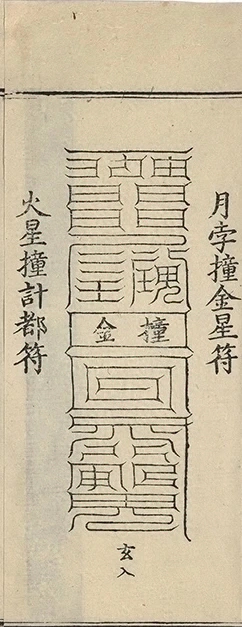 月孛撞金星符
撞金
玄入
火星撞計都符